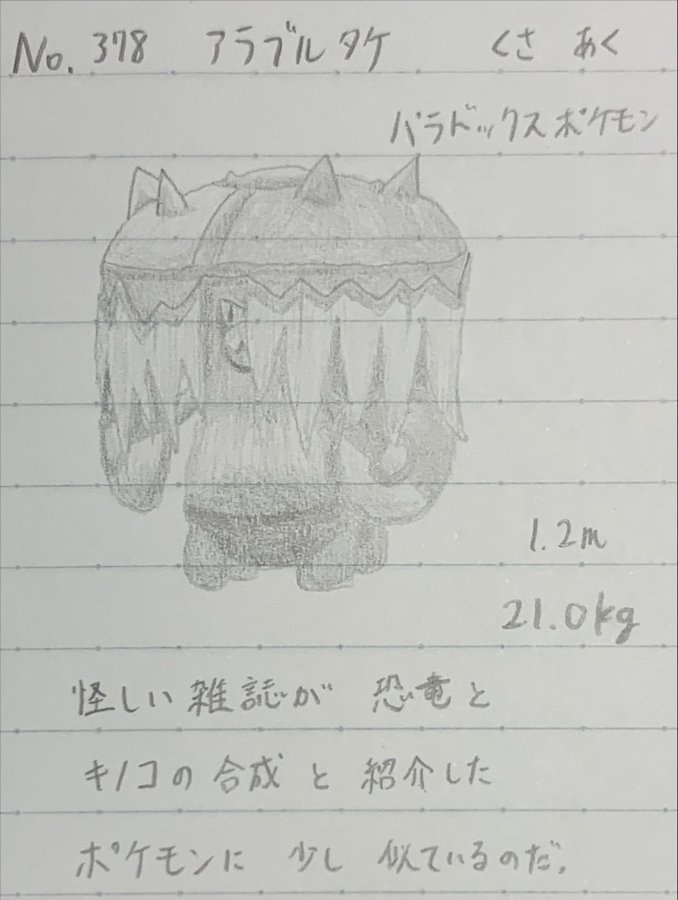 No. 378 アラブルタケ くさ あく
パラドックスポケモン
1.2m
21.0kg
怪しい雑誌が 恐竜と
キノコの合成と紹介した
ポケモンに 少し 似ているのだ。